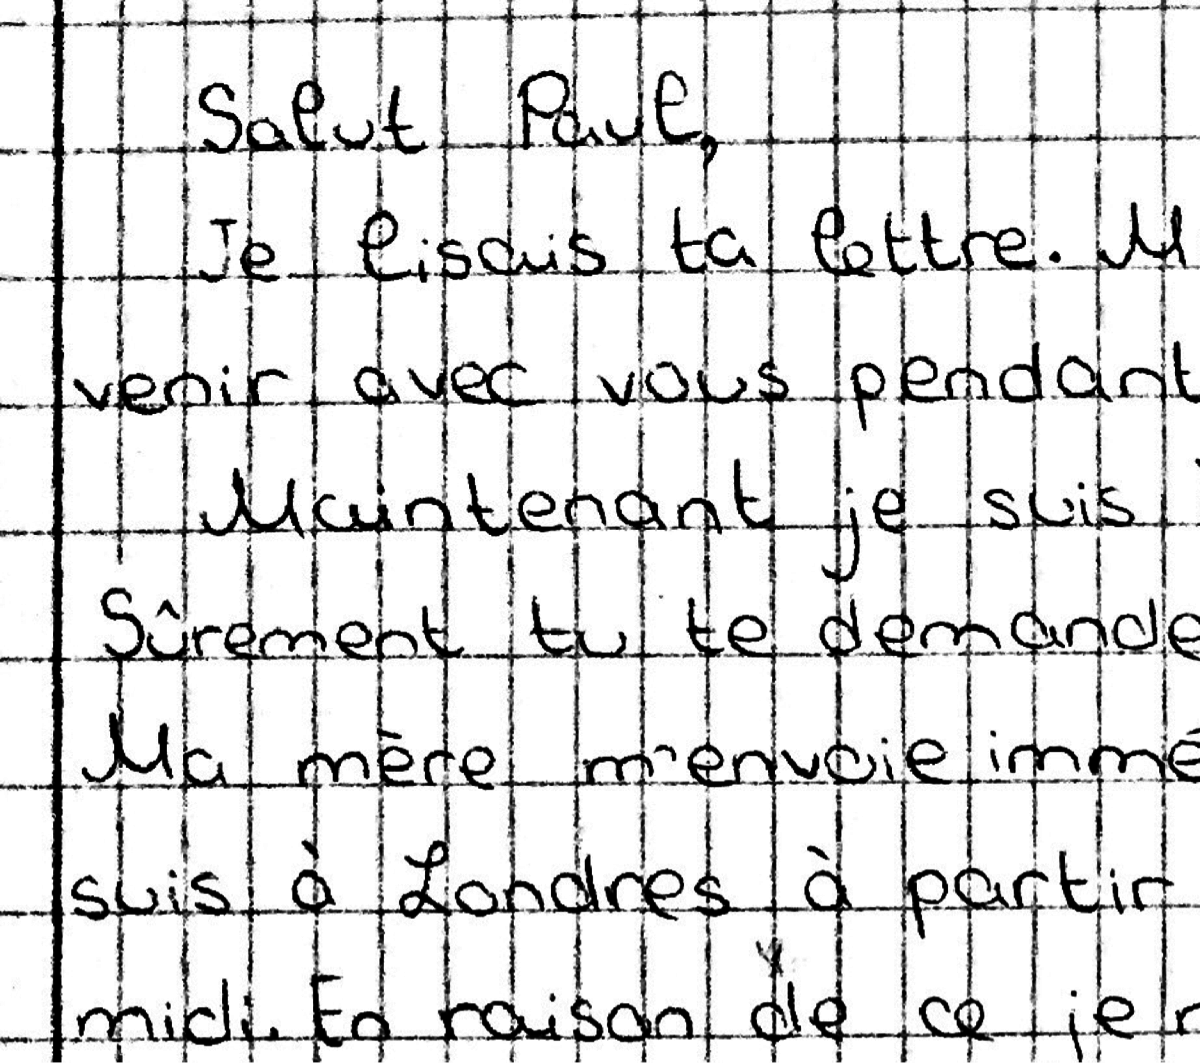 Salut Paul,
Je lisais ta lettre. M
venir avec vous pendant
Maintenant je suis
Sûrement tu te demande
Ma mère m'envoie immé
suis à Londres à partir
midi. En raison de ce je n